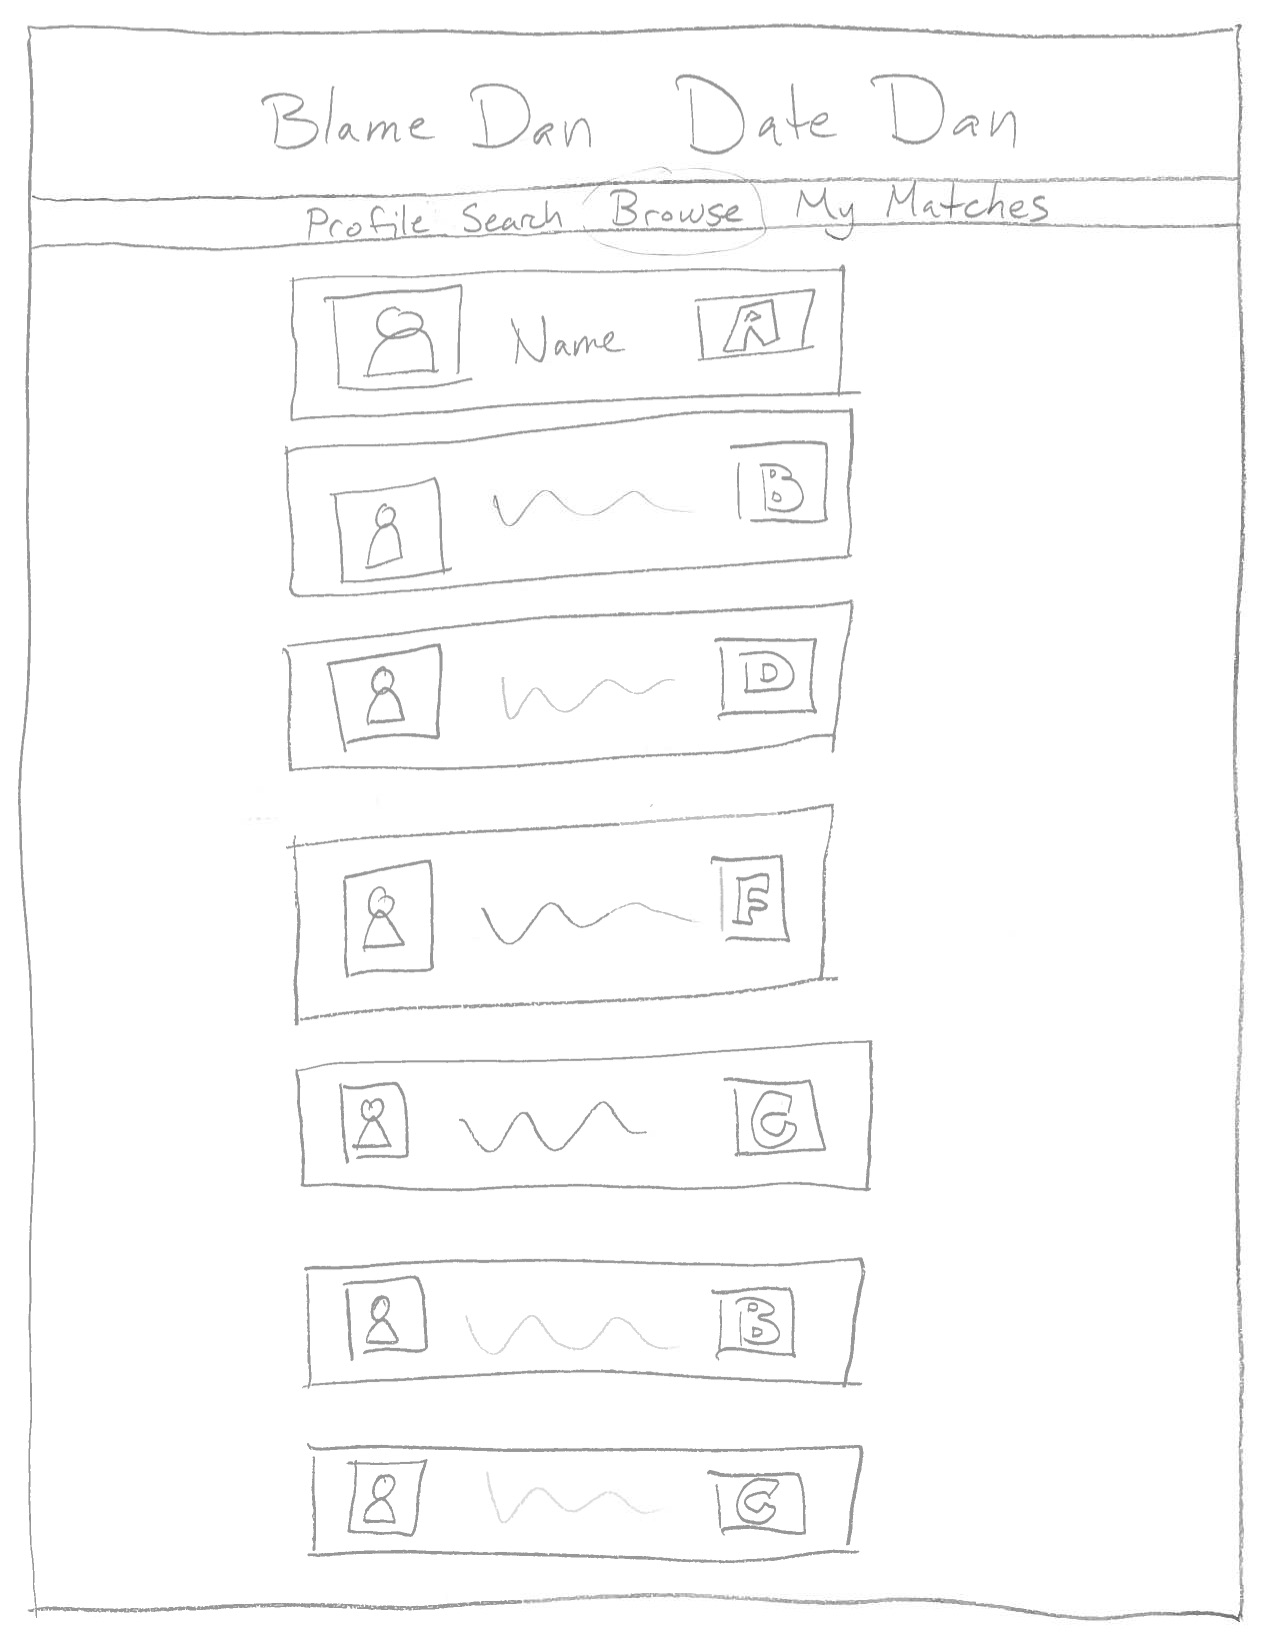 Blame Dan Date Dan
Profile Search Browse My Matches
Name A
B
D
F
C
B
C